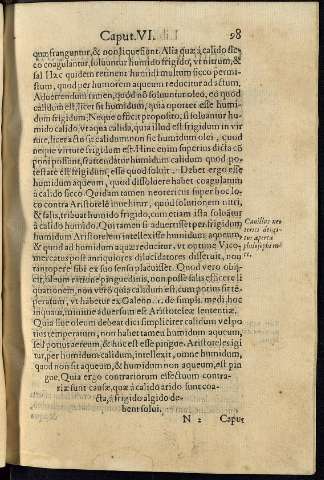 Caput. VI. 98
quæ franguntur, & non liquescunt. Alia quæ à calido sic-
co coagulantur, soluuntur humido frigido, vt nitrum, &
sal. Hæc quidem retinent humidi multum sicco permi-
stum, quod per humorem aqueum reducitur ad actum.
Aduertendum tamen, quòd nõ soluuntur oleo, eò quod
calidum est, licet sit humidum, quia oportet esse humi-
dum frigidum. Neque officit proposito, si soluantur hu-
mido calido, vt aqua calida, quia illud est frigidum in vir-
tute, licet actu sit calidum, non sic humidum olei, quod
neque virtute frigidum est. Hinc enim superius dicta cõ
poni possunt, si attendatur humidum calidum quod po-
testate est frigidum, esse quod soluit. Debet ergo esse
humidum aqueum, quod dissoluere habet coagulatum
à calido sicco. Quidam tamen neotericus super hoc lo-
co contra Aristotelẽ inuehitur, quòd solutionem nitri,
& salis, tribuat humido frigido, cum etiam ista soluãtur
à calido humido. Qui tamen si aduertisset per frigidum,
humidum Aristotelem intellexisse humidum aqueum,
& quod ad humidum aquæ reducitur, vt optime Vico-
mercatus post antiquiores dilucidatores disseruit, non
tantopere sibi ex suo sensu placuisset. Quod verò obij-
cit, oleum ratione pinguedinis, non posse salis efficere li
quationem, non verò quia calidum est, cum potius sit tẽ-
peratum, vt habetur ex Galeno. de simpli. medi. hoc
inquam, minime aduersum est Aristoteleæ sententiæ.
Quia siue oleum debeat dici simpliciter calidum vel po-
tius temperatum, non habet tamen humidum aqueum,
sed potius aereum, & hoc est esse pingue. Aristoteles igi
tur, per humidum calidum, intellexit, omne humidum,
quod non sit aqueum, & humidum non aqueum, est pin
gue. Quia ergo contrariorum effectuum contra-
riæ sunt causæ, quæ à calido arido sunt coa-
cta, à frigido algido de-
bent solui.
Cauillus neo
terici
ter aperta
philosophi
N 2 Caput